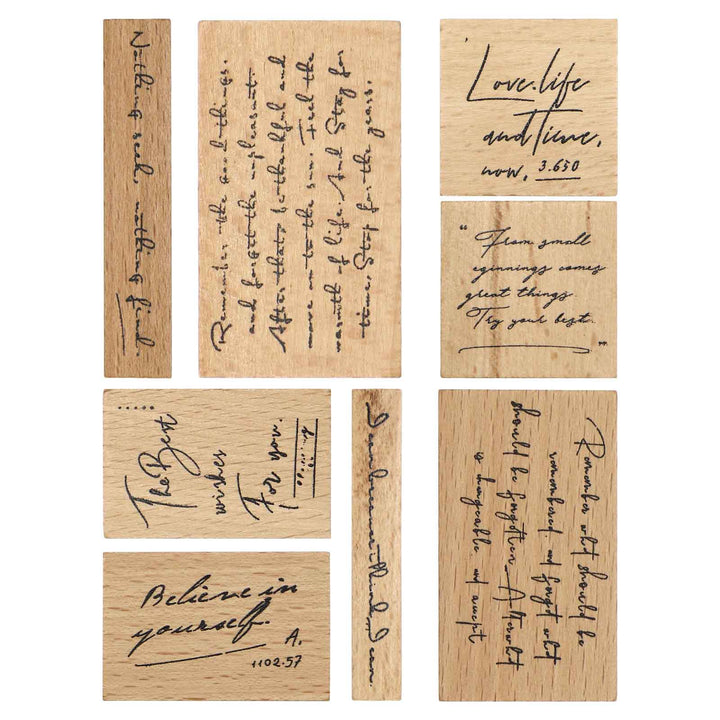 Nothing seek, nothing find.
Remember the good things.
and forget the unpleasant.
After that, be thankful and
move on to the sun. Feel the
warmth of life. And Stay for
time. Stay for the years.
Love.life
and Time,
now, 3.650
“From small
eginnings comes
great things.
Try your best.”
The Best
wishes
For you.
Believe in
yourself.
A.
1102.57
I can because i think I can.
Remember what should be
remembered, and forget what
should be forgotten. Alter what
is changeable, and accept